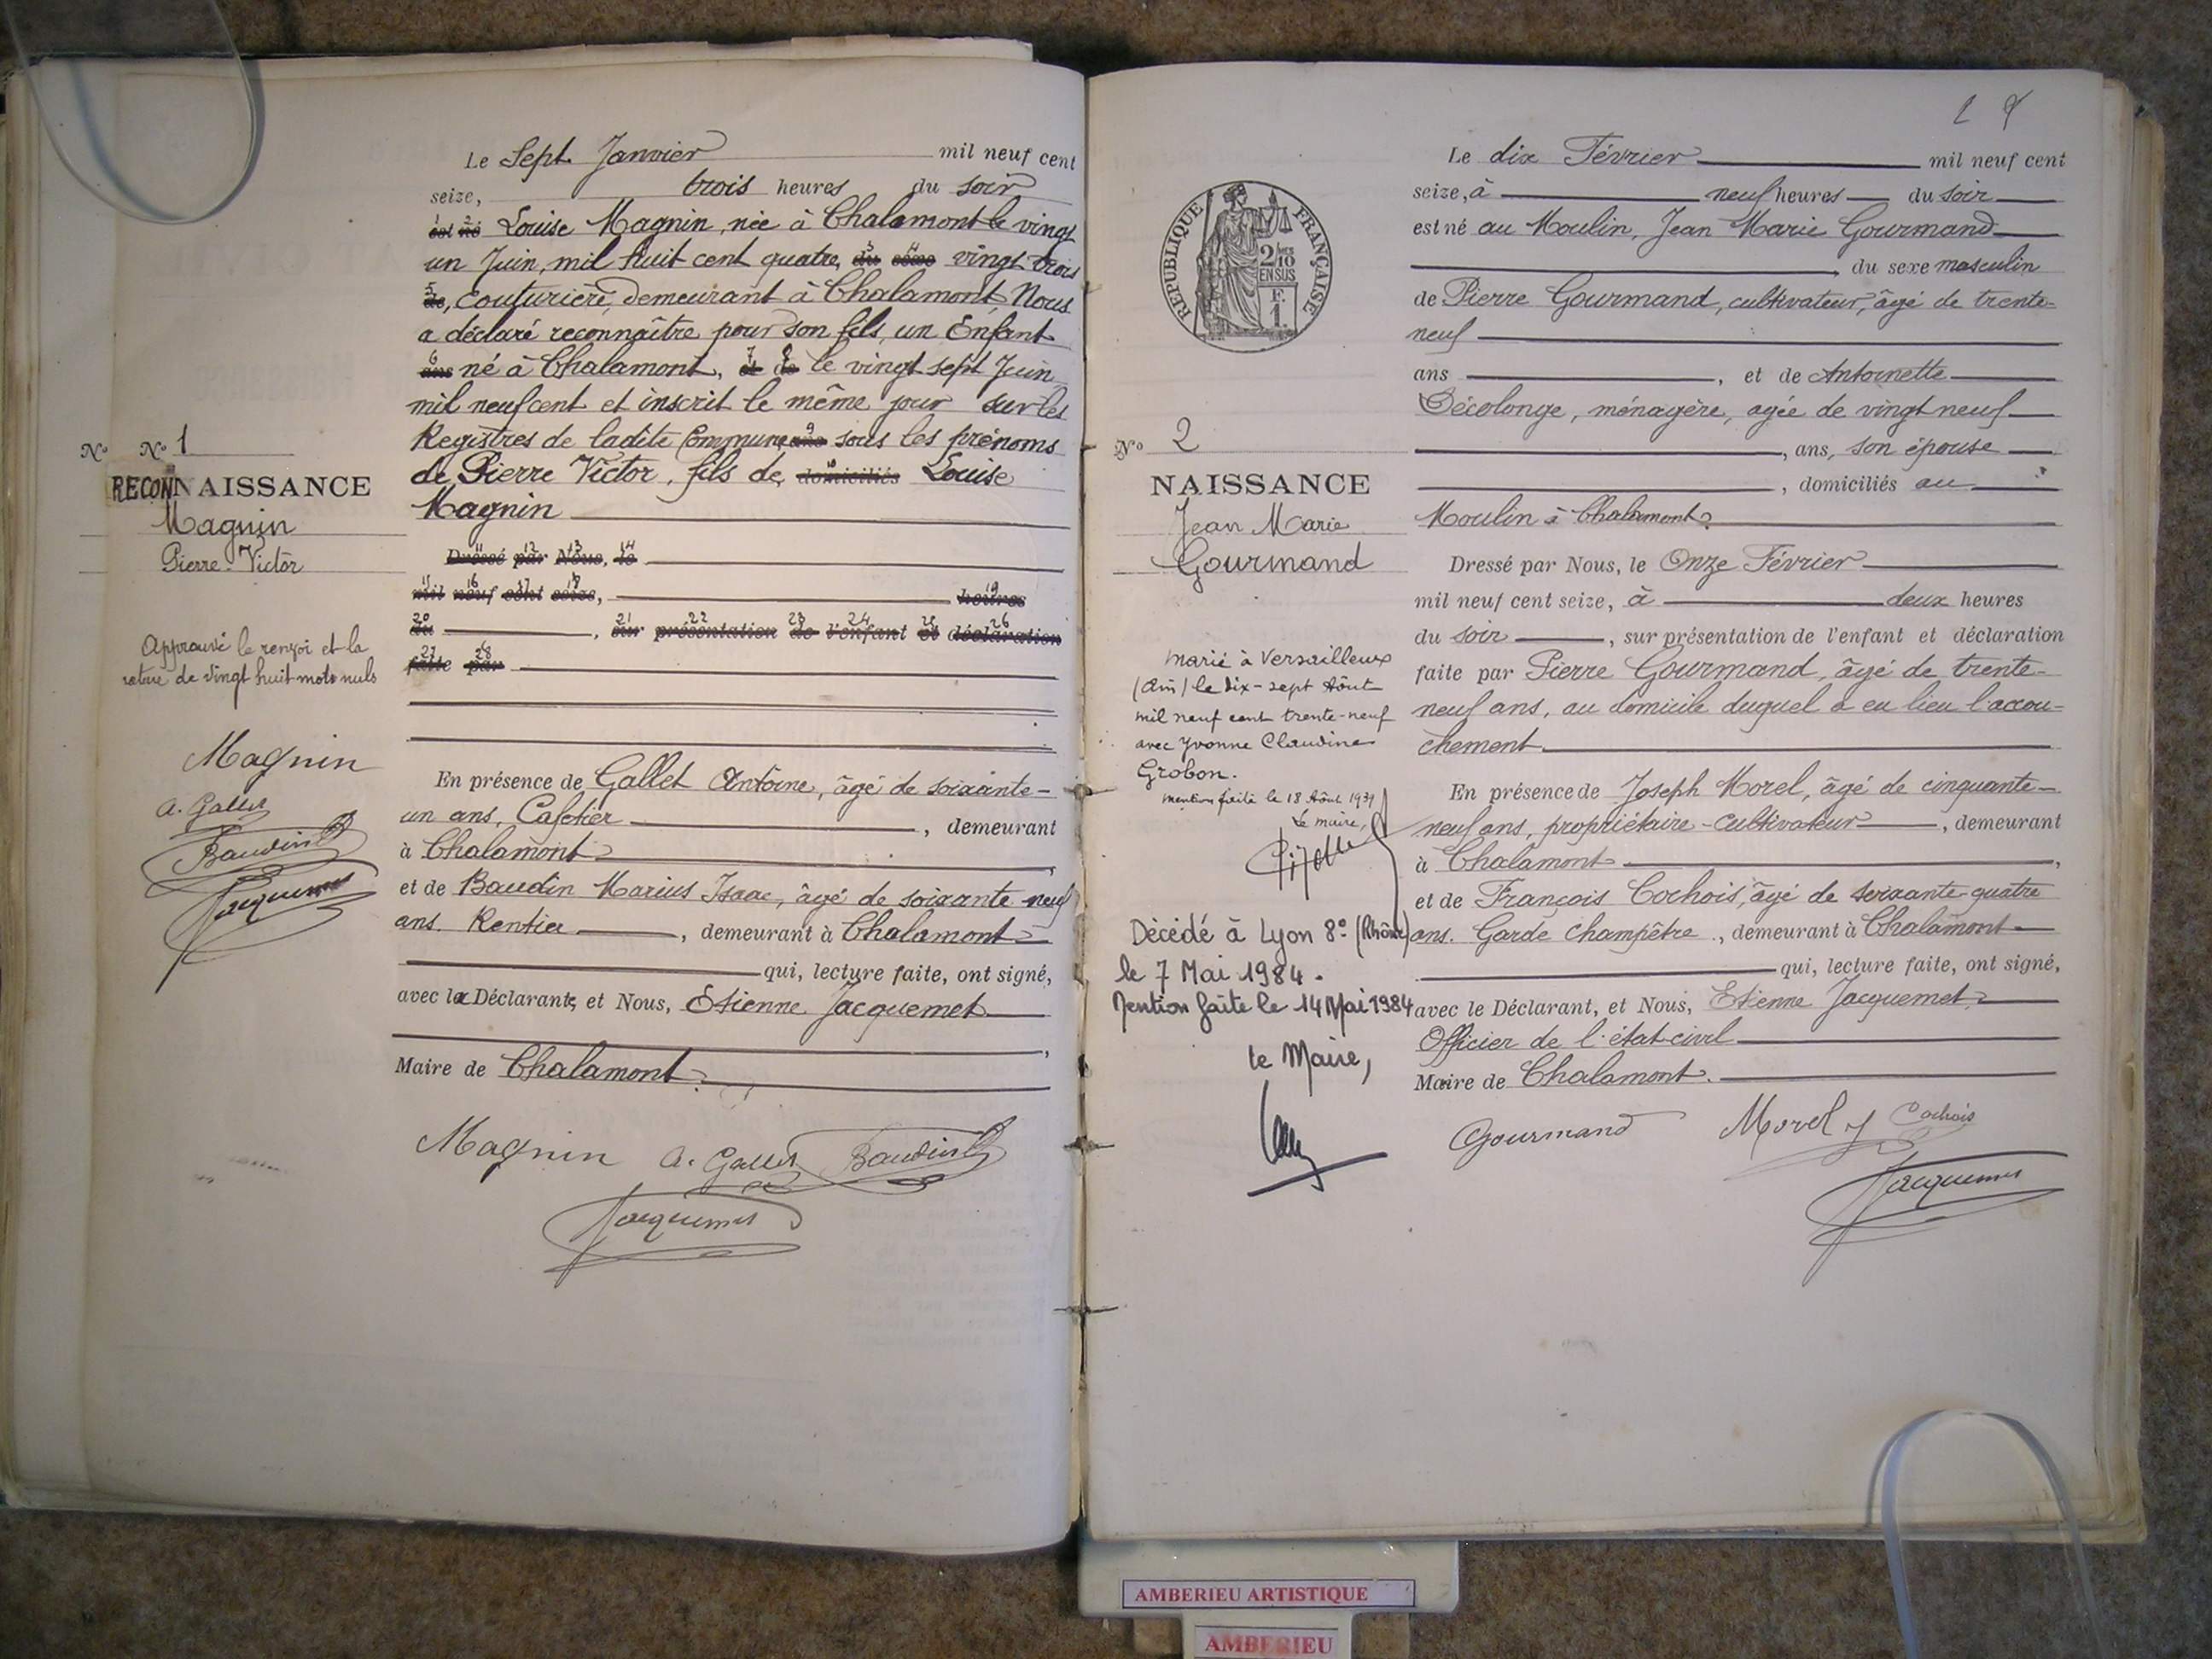 Le Sept Janvier mil neuf cent
seize, trois heures du soir
est né Louise Magnin, née à Chalamont le vingt
un Juin, mil huit cent quatre, du sexe vingt trois
de, couturière, demeurant à Chalamont, Nous
a déclaré reconnaître pour son fils, un Enfant
ans né à Chalamont, et de le vingt sept Juin
mil neuf cent et inscrit le même jour sur les
Registres de ladite Commune, ans sous les prénoms
de Pierre Victor, fils de, domiciliés Louise
Magnin
Dressé par Nous, le
mil neuf cent seize, heures
du , sur présentation de l'enfant et déclaration
faite par
En présence de Gallet Antoine, âgé de soixante-
un ans, Cafetier , demeurant
à Chalamont ,
et de Baudin Marius Isaac, âgé de soixante neuf
ans. Rentier , demeurant à Chalamont
qui, lecture faite, ont signé,
avec la Déclarante, et Nous, Etienne Jacquemet
,
Maire de Chalamont.
Magnin A. Gallet Baudin
Jacquemet
N° N° 1
RECONNAISSANCE
Magnin
Pierre-Victor
Approuvé le renvoi et la
rature de vingt huit mots nuls
Magnin
A. Gallet
Baudin
Jacquemet
2
REPUBLIQUE FRANÇAISE
2/10
EN SUS
F.
1.
N° 2
NAISSANCE
Jean Marie
Gourmand
marié à Versailleux
(Ain) le dix-sept Août
mil neuf cent trente-neuf
avec Yvonne Claudine
Grobon.
mention faite le 18 Août 1939
Le maire,
Décédé à Lyon 8e (Rhône)
le 7 Mai 1984.
Mention faite le 14 Mai 1984
le Maire,
Le dix Février mil neuf cent
seize, à neuf heures du soir
est né au Moulin, Jean Marie Gourmand
, du sexe masculin
de Pierre Gourmand, cultivateur, âgé de trente-
neuf
ans , et de Antoinette
Décolonge, ménagère, agée de vingt neuf
, ans, son épouse
, domiciliés au
Moulin à Chalamont.
Dressé par Nous, le Onze Février
mil neuf cent seize, à deux heures
du soir , sur présentation de l'enfant et déclaration
faite par Pierre Gourmand, âgé de trente-
neuf ans, au domicile duquel a eu lieu l'accou-
chement
En présence de Joseph Morel, âgé de cinquante-
neuf ans, propriétaire-cultivateur , demeurant
à Chalamont ,
et de François Cochois, âgé de soixante-quatre
ans. Garde champêtre , demeurant à Chalamont
qui, lecture faite, ont signé,
avec le Déclarant, et Nous, Etienne Jacquemet,
Officier de l'état-civil
Maire de Chalamont.
Gourmand Morel J Cochois
Jacquemet
AMBERIEU ARTISTIQUE
AMBERIEU